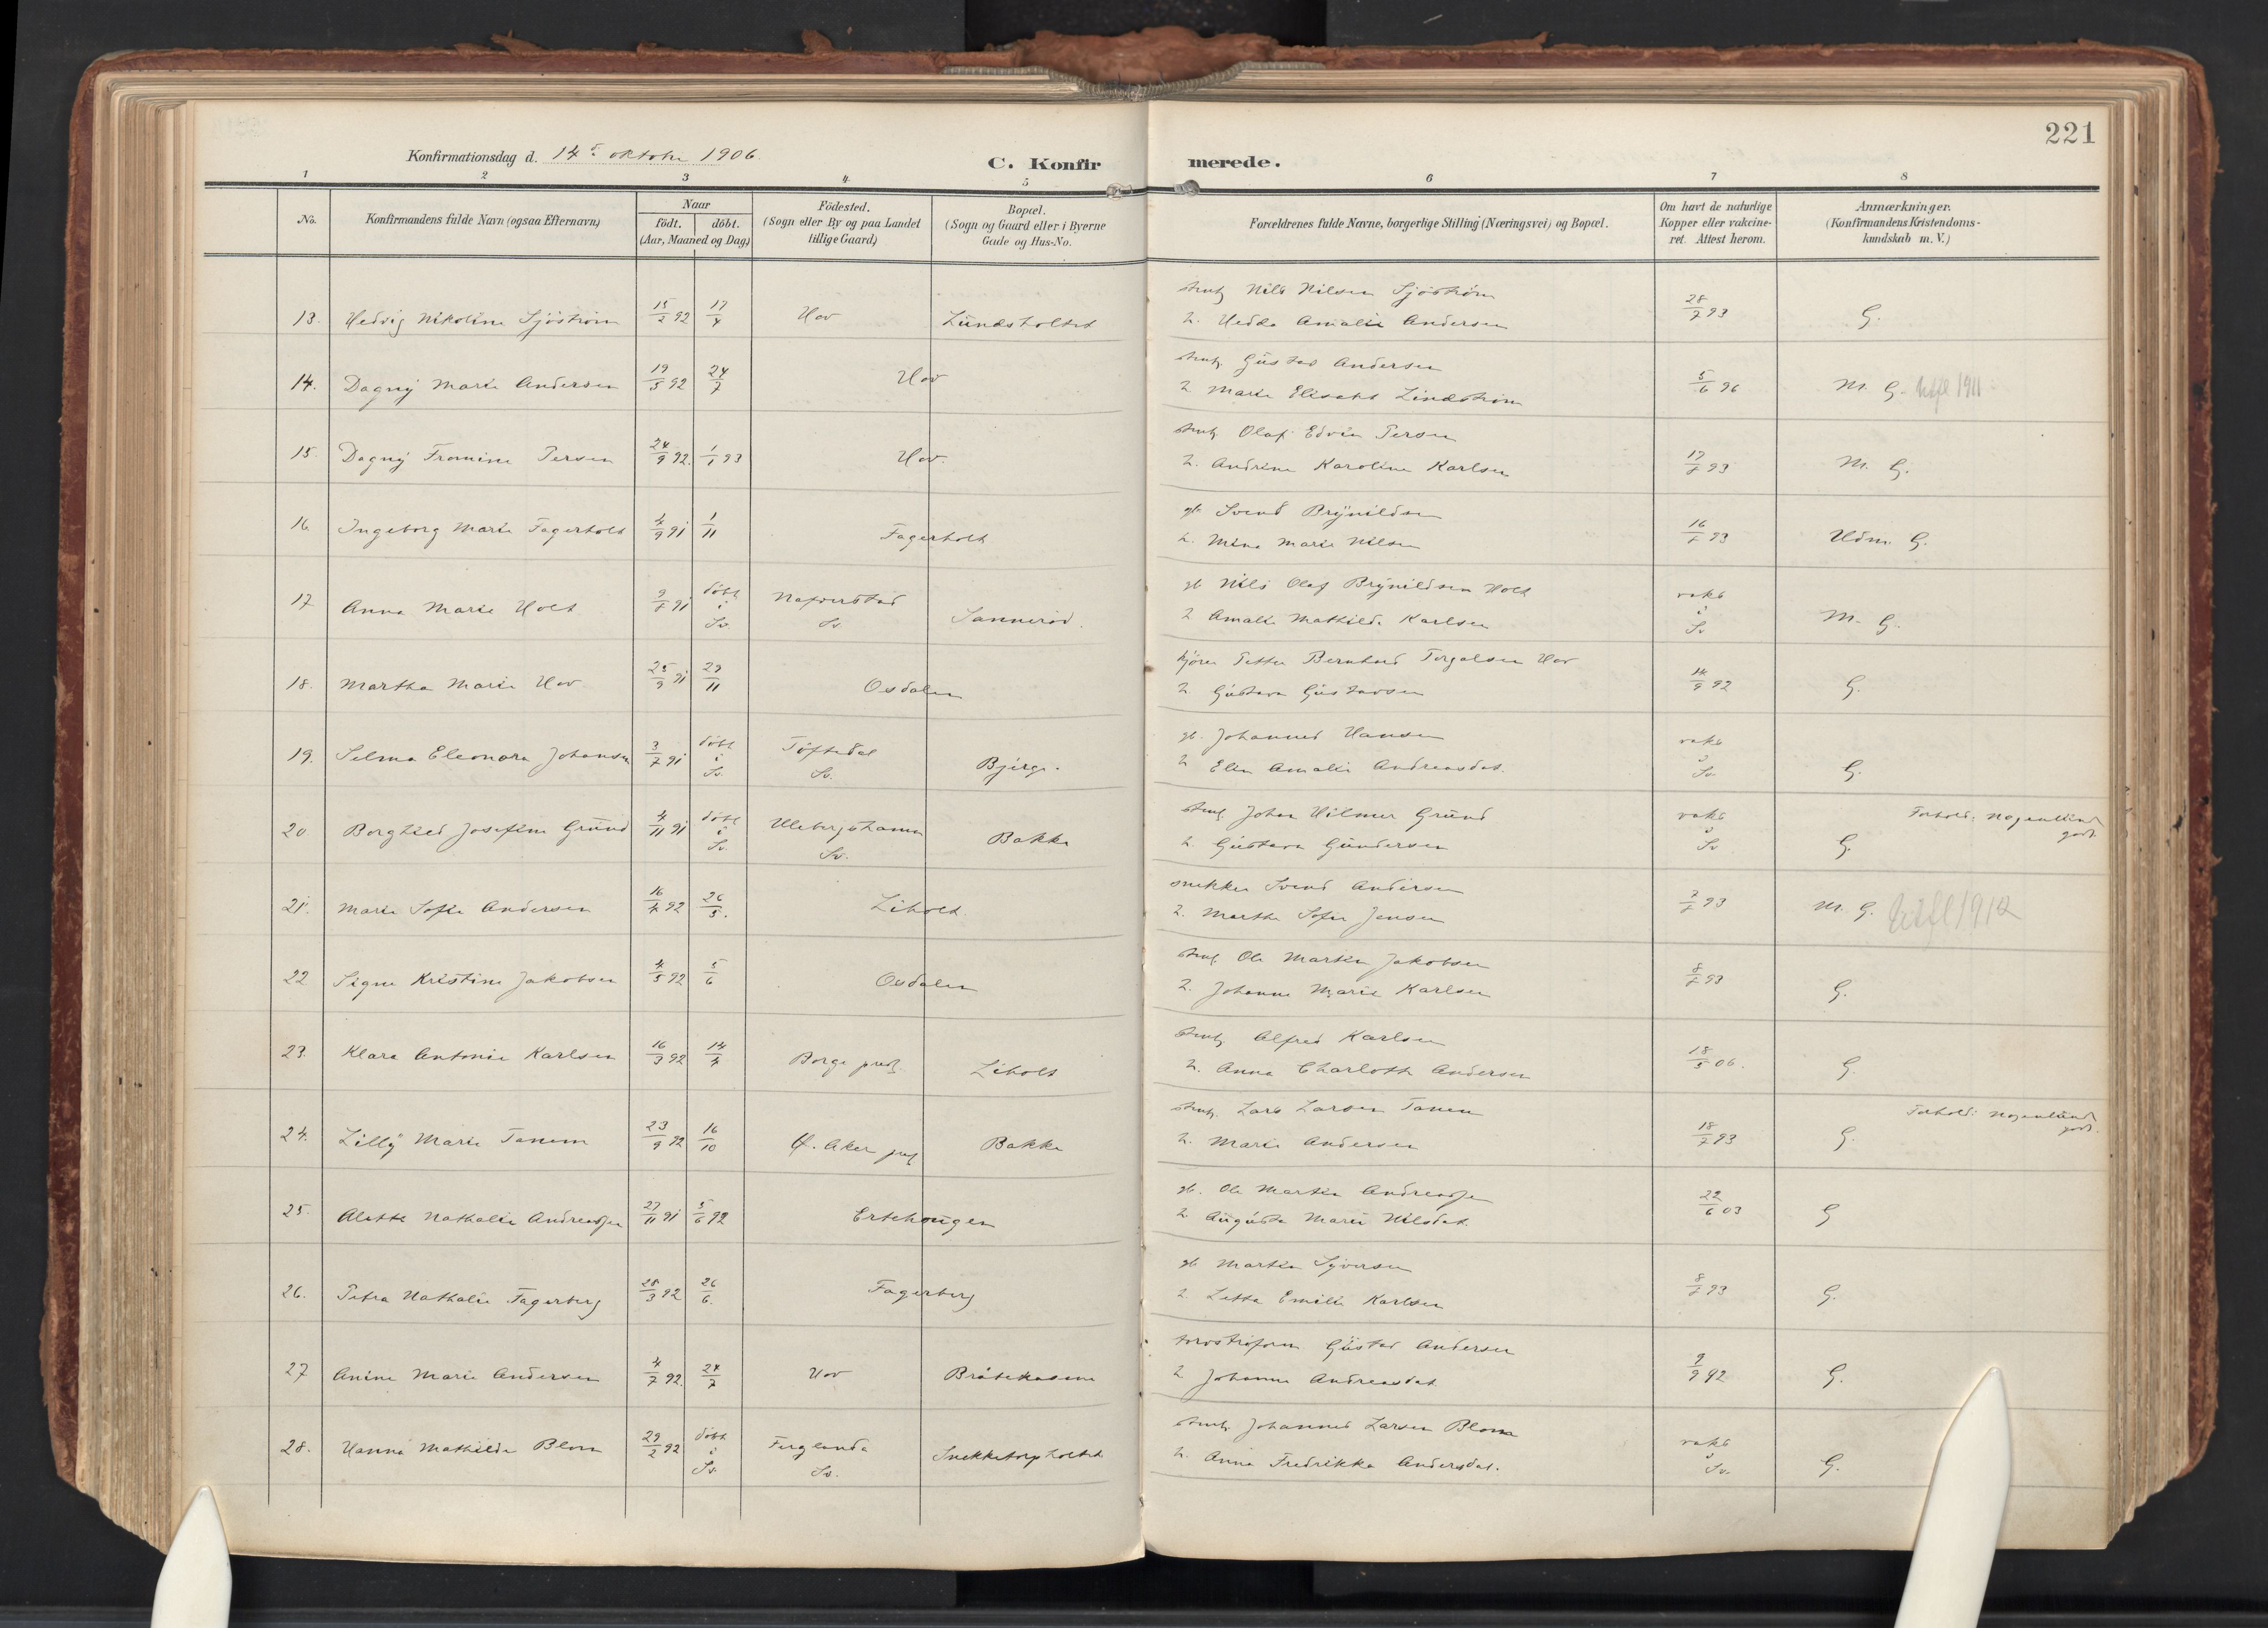 221
Konfirmationsdag d. 14de oktober 1906.
C. Konfirmerede.
1 2 3 4 5 6 7 8
No.
Konfirmandens fulde Navn (ogsaa Efternavn)
Naar
født. døbt.
(Aar, Maaned og Dag)
Födested.
(Sogn eller By og paa Landet
tillige Gaard)
Bopæl.
(Sogn og Gaard eller i Byerne
Gade og Hus-No.
Forældrenes fulde Navne, borgerlige Stilling (Næringsvei) og Bopæl.
Om havt de naturlige
Kopper eller vakcine-
ret. Attest herom.
Anmærkninger.
(Konfirmandens Kristendoms-
kundskab m. V.)
Nils Nilsen Sjöström
13. Hedvig Nikoline Sjöström 15/2 92 17/4 Hov Lundsholtet h. Hedda Amalie Andersen 28/7 93 G.
Gustav Andersen
14. Dagny Marie Andersen 19/5 92 24/7 Hov h. Marie Elisabet Lindström 5/6 96 M. G. Utfl 1911
Olaf Edvin Persen
15. Dagny Fromine Persen 24/9 92. 1/1 93 Hov. h. Andrine Karoline Karlsen 17/7 93 M. G.
gb. Svend Brynildsen
16. Ingeborg Marie Fagerholt 4/9 91 1/11 Fagerholt h. Mina Marie Nilsen 16/7 93 Udm. G.
gb. Nils Olaf Brynildsen Holt
17 Anna Marie Holt 9/7 91 döbt i Sv. Naverstad Sv. Sannerød. h. Amalie Mathilde Karlsen vaks i Sv M. G.
Petter Bernhard Torgalsen Hov
18. Martha Marie Hov 25/9 91 29/11 Osdalen h. Gustava Gustavsen 14/9 92 G.
gb. Johannes Hansen
19. Selma Eleonora Johansen 3/7 91 döbt i Sv. Töftedal Sv. Bjerge. h. Elin Amalie Andreasdat. vaks i Sv. G.
Johan Hilmer Grund
20 Borghild Josefine Grund 4/11 91 döbt i Sv. Sv. Bakke h. Gustava Gundersen vaks i Sv G. Forhold: nogenlund godt.
snekker Svend Andersen
21. Marie Sofie Andersen 16/4 92 26/5. Liholt h. Marthe Sofie Jensen 7/7 93 M. G. Utfl 1912
Ole Martin Jakobsen
22 Signe Kristine Jakobsen 4/5 92 5/6 Osdalen h. Johanne Marie Karlsen 8/7 93 G.
Alfred Karlsen
23. Klara Antonie Karlsen 16/3 92 14/4 Borge Liholt h. Anna Charlotte Andersen 18/5 06. G.
Lars Larsen Tanem
24. Lilly Marie Tanem 23/9 92 16/10 Ø. Aker Bakke h. Marie Andersen 18/7 93 G. Forhold: nogenlund godt.
gb. Ole Martin Andreassen
25. Alette Nathalie Andreassen 27/11 91 5/6 92 Ertehougen h. Augusta Marie Nilsdat. 22/6 03 G
gb. Martin Syversen
26. Petra Nathalie Fagerberg 28/3 92 26/6. Fagerberg h. Letta Emilie Karlsen 8/7 93 G.
Gustav Andersen
27 Anine Marie Andersen 4/7 92. 24/7 Hov Bråtekasene h. Johanne Andreasdat 9/9 92 G.
Johannes Larsen Blom
28. Hanna Mathilde Blom 29/2 92 döbt i Sv. Ferglanda Sv. Snekketorpholtet h. Anna Fredrikke Andersdat. vaks i Sv. G.